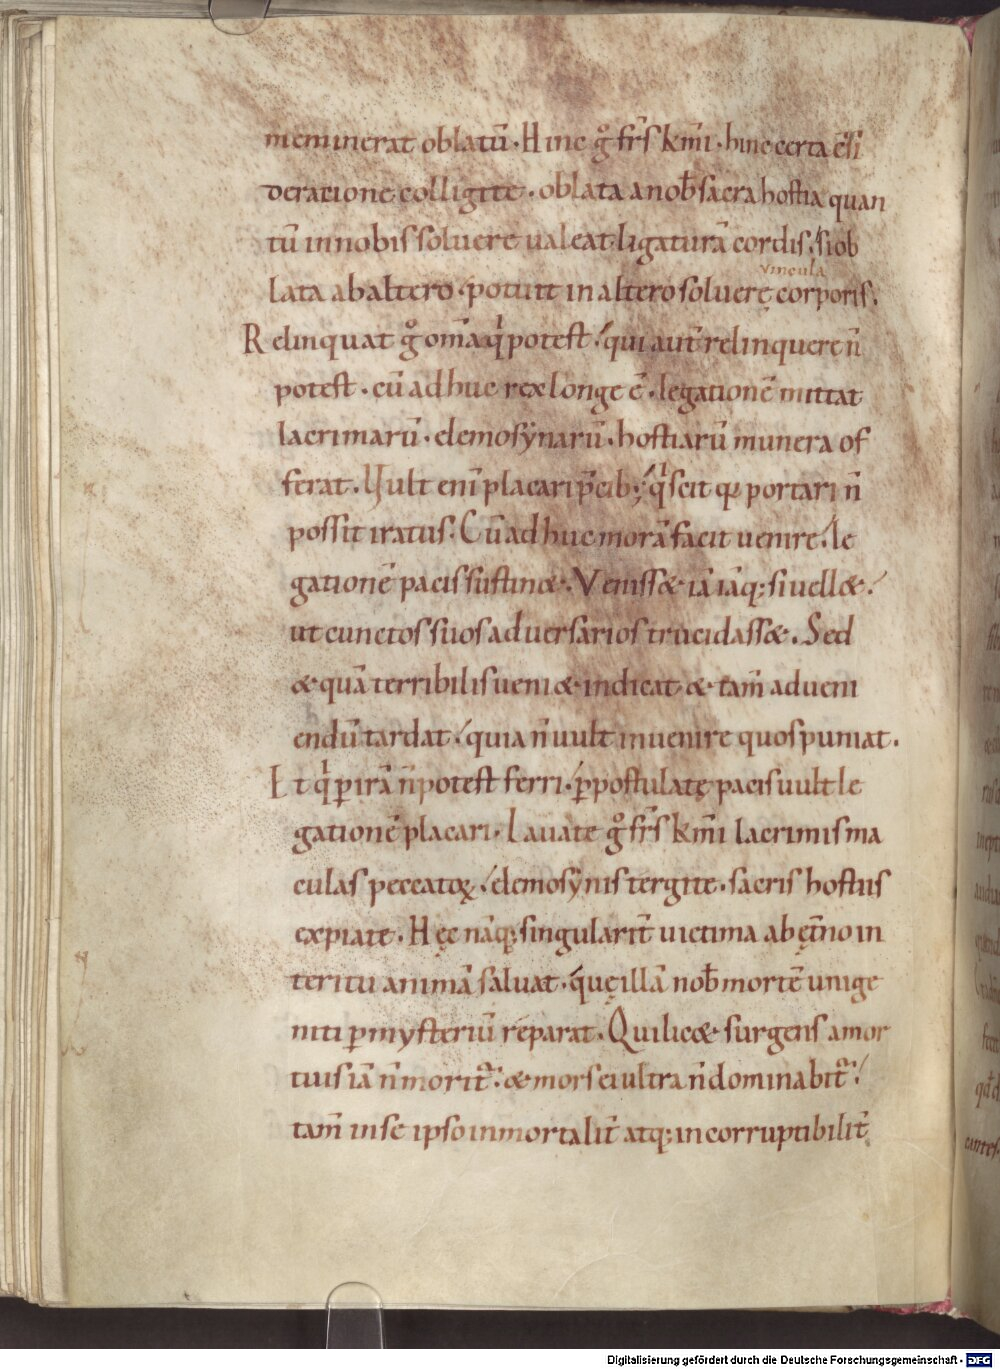 meminerat oblatū. Hinc gͦ fr̄s km̄i. hinc certa c̄si
deratione colligite. oblata a nob̄ sacra hostia quan
tū in nobis soluere ualeat ligaturā cordis, si ob
vincula
lata ab altero. potuit in altero soluere corporis.
Relinquat gͦ om̄a qͥ potest. qui aut̄ relinquere n̄
potest. cū adhuc rex longe ē. legationē mittat
lacrimarū. elemosẏnarū. hostiarū munera of
ferat. Vult eni placari p̄cib; qͥ scit qꝫ portari n̄
possit iratus. Cū adhuc morā facit uenire. le
gationē pacis sustinet. Venisset iā iāq; si uellet.
ut cunctos suos aduersarios trucidasset. Sed
et quā terribilis ueniet indicat et tam̄ adueni
endū tardat. quia n̄ uult inuenire quos puniat.
Et qͥ ꝑ irā n̄ potest ferri. ꝑ postulatę pacis uult le
gationē placari. Lauate gͦ fr̄s km̄i lacrimis ma
culas peccatoꝝ. elemosẏnis tergite. sacris hostiis
expiate. Hęc nāq; singularit̄ uictima ab ęt̄no in
teritu animā saluat. quę illā nob̄ mortē unige
niti ꝑ mysteriū reparat. Qui licet surgens a mor
tuis iā n̄ morit̄. et mors ei ultra n̄ dominabit̄.
tam̄ in se ipso inmortalit̄ atq; incorruptibilit̄
Digitalisierung gefördert durch die Deutsche Forschungsgemeinschaft - DFG